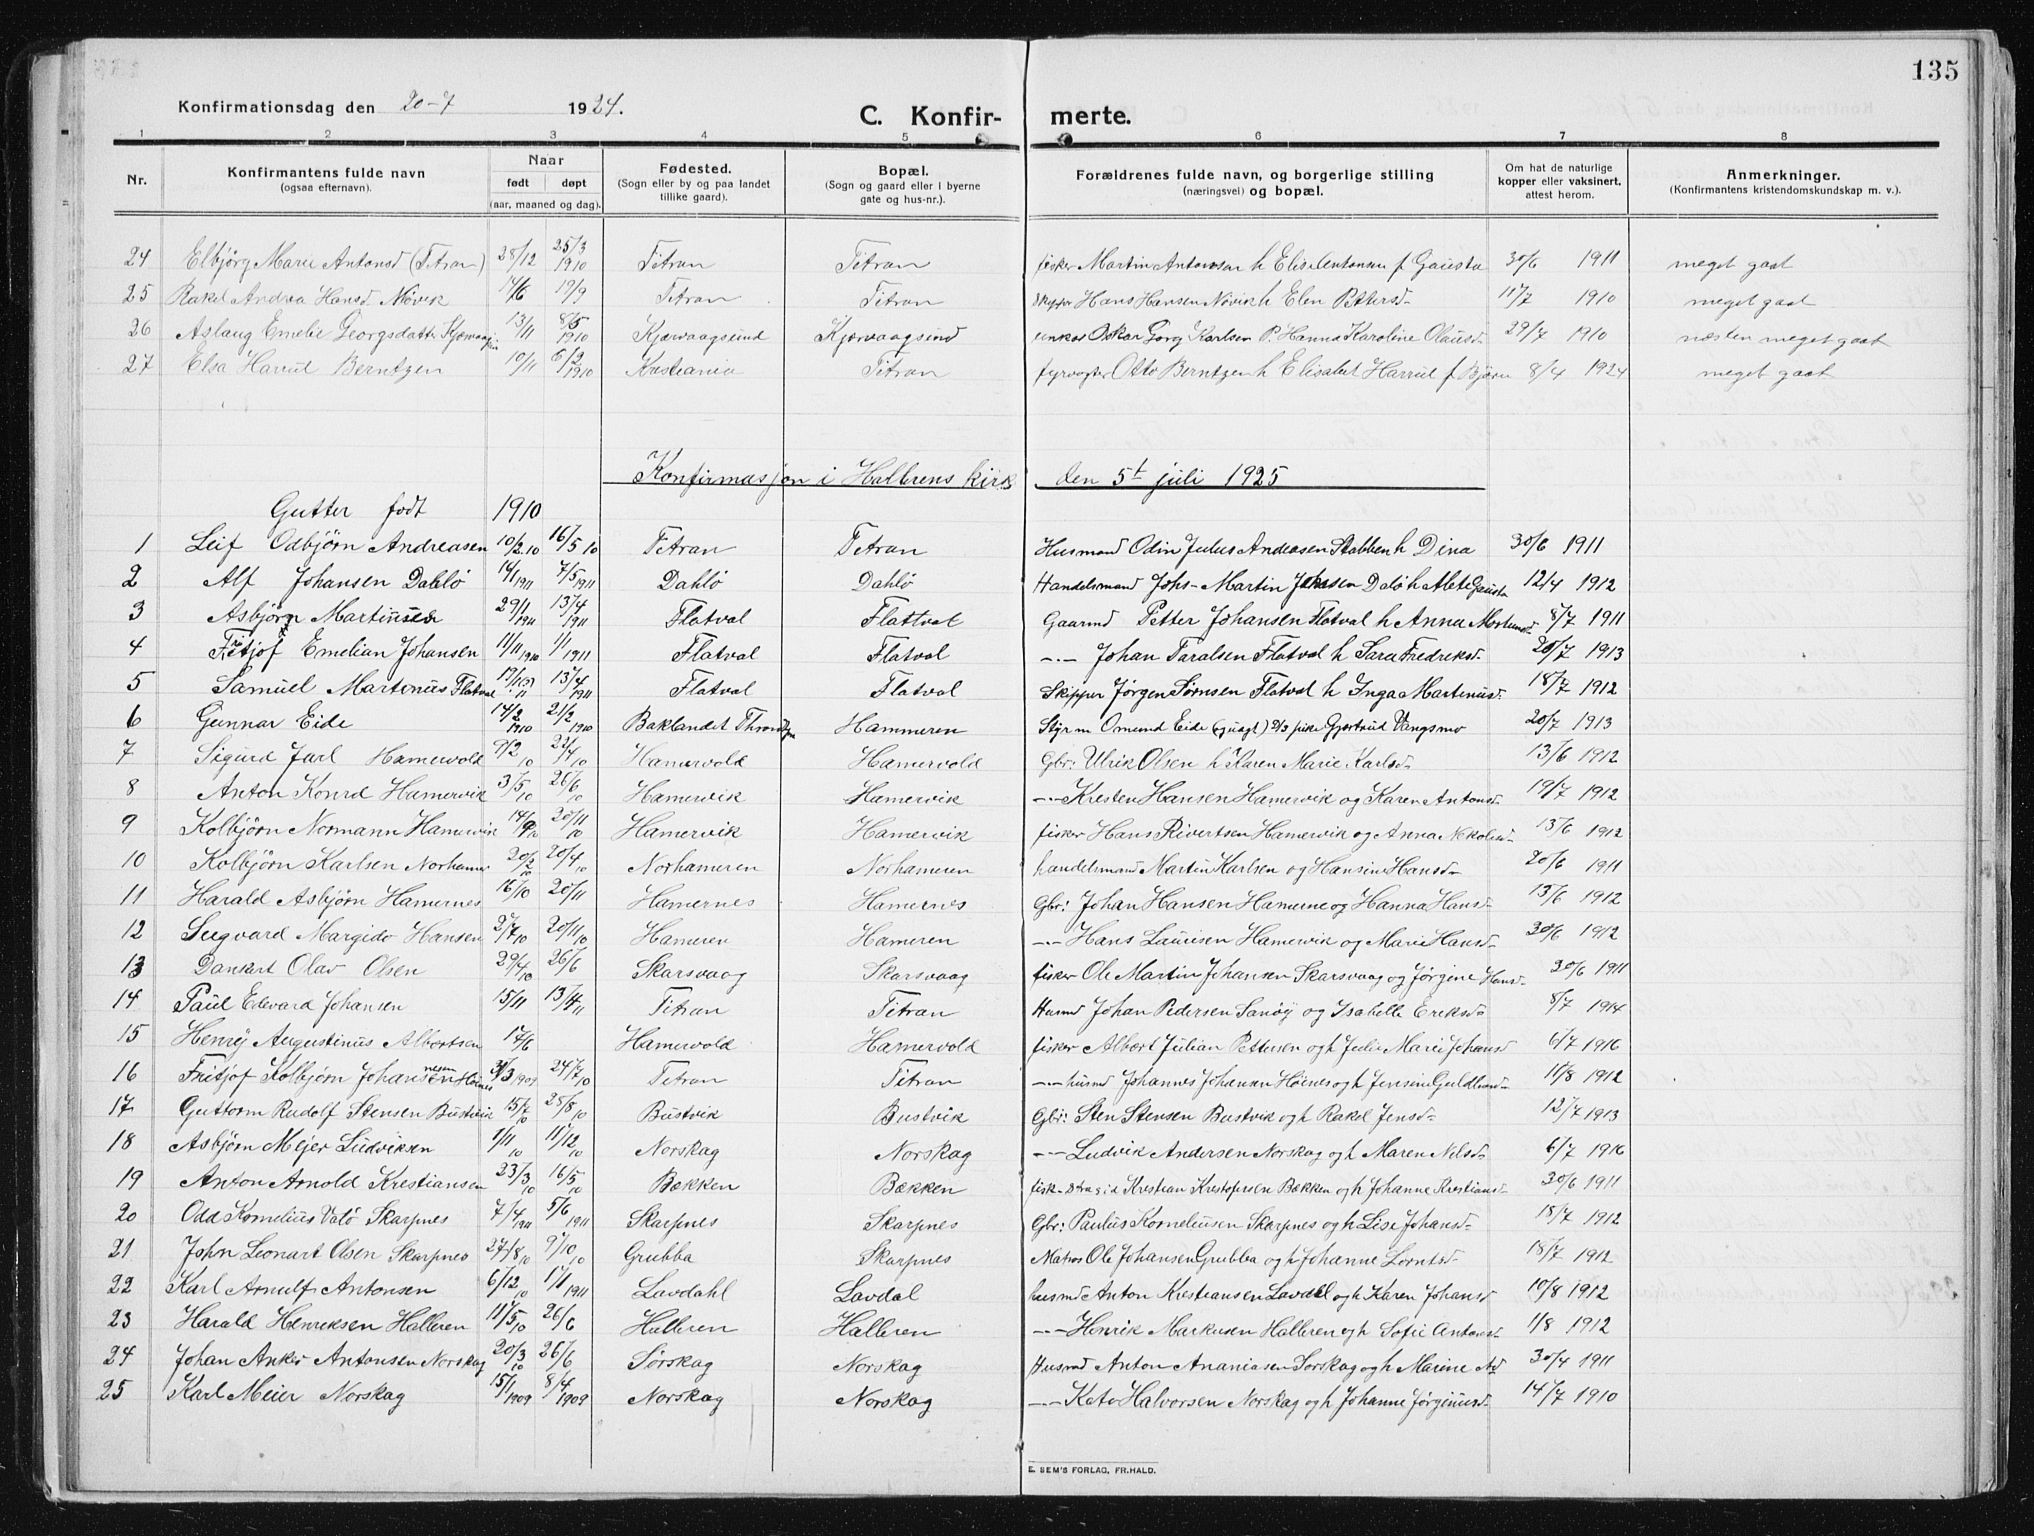 135
Konfirmationsdag den 20-7 1924.
C. Konfir- merte.
1 2 3 4 5 6 7 8
Nr. Konfirmantens fulde navn (ogsaa efternavn). Naar født døpt (aar, maaned og dag). Fødested. (Sogn eller by og paa landet tillike gaard). Bopæl. (Sogn og gaard eller i byerne gate og hus-nr.). Forældrenes fulde navn, og borgerlige stilling (næringsvei) og bopæl. Om hat de naturlige kopper eller vaksinert, attest herom. Anmerkninger. (Konfirmantens kristendomskundskap m. v.).
24 Elbjørg Marie Antonsd (Titran) 28/12 25/3 1910 Titran Titran fisker Martin Antonsen h Elise Antonsen f Gausta 30/6 1911 meget gaat
25 Rakel Andrea Hansd Nøvik 14/6 19/9 Titran Titran Skipper Hans Hansen Növik h Elen Pettersd 11/7 1910 meget gaat
26 Aslaug Emelie Georgsdatter 13/11 8/5 1910 Kjærvaagsund Kjærvaagsund Oskar Georg Karlsen Hanna Karoline Olausd 29/7 1910 næsten meget gaat
27 Elsa Harriet Berntzen 10/11 6/2 1910 Kristiania Titran fyrvogter Otto Berntzen h Elisabet f Bjørn 8/4 1924 meget gaat
Konfirmasjon i Hallerens kirk den 5t juli 1925
Gutter født 1910
1 Leif Odbjörn Andreasen 10/2 10 16/5 10 Titran Titran Husmand Odin Julius Andreasen Stabben h Dina 30/6 1911
2 Alf Johansen Dahlö 14/1 1911 7/5 1911 Dahlö Dahlö Handelsmand Johs- Martin Dalö h Gausta 12/4 1912
3 Asbjörn Martinsen 29/1 1911 13/4 1911 Flatval Flattval Gaarmd Petter Johansen Flatval h Anna 8/7 1911
4 Fritjof Emelian Johansen 11/11 1910 1/1 1911 Flatval Flatval -"- Johan Taralsen Flatval h Sara Fredriksd 20/7 1913
5 Samuel Martinus Flatval 13/4 1911 Flatval Flatval Skipper Jörgen Sörnsen Flatval h Inga Martinusd 18/7 1912
6 Gunnar Eide 14/2 1910 21/2 1910 Baklandet Hammeren Styrm Omund Eide pike Gjertrud Vangsmo 20/7 1913
7 Sigurd Jarl Hamervold 9/2 10 22/4 10 Hamervold Hamervold Gbr: Ulrik Olsen h Karen Marie Karlsd 13/6 1912
8 Anton Konrd Hamervik 3/5 10 26/6 10 Hamervik Hamervik -"- Kresten Hansen Hamervik og Karen Antonsd 19/7 1912
9 Kolbjörn Normann Hamervik 14/9 10 20/11 10 Hamervik Hamervik fisker Hans Rivertsen Hamervik og Anna Nekolaisd 13/6 1912
10 Kolbjörn Karlsen Norhamer 20/2 10 20/4 10 Norhameren Norhameren handelsmand Martin Karlsen og Hansine Hansd 20/6 1911
11 Harald Asbjörn Hamernes 16/10 20/11 Hamernes Hamernes Gbr: Johan Hansen Hamerne og Hanna Hansd 13/6 1912
12 Sigvard Margido Hansen 2/7 10 20/11 10 Hameren Hameren -"- Hans Laurisen Hamervik og Marie Hansd 30/6 1912
13 Dankert Olav Olsen 29/4 10 26/6 Skarsvaag Skarsvaag fisker Ole Martin Johansen Skarsvaag og Jörgine Hansd 30/6 1911
14 Paul Edevard Johansen 15/11 13/4 11 Titran Titran Husmd Johan Pedersen Sanöy og Isabelle Eriksd 8/7 1914
15 Henry Augustinus Albertsen 17/6 Hamervold Hamervold fisker Albert Julian Pettersen og h Julie Marie Johansd 6/7 1916
16 Fritjof Kolbjörn Johannesen Höines 31/3 1909 24/7 10 Titran Titran -"- husmd Johannes Johansen Höines og h Jensine Guldbrandsd 11/8 1912
17 Guttorm Rudolf Stensen Bustvik 15/7 10 28/8 10 Bustvik Bustvik Gbr: Sten Stensen Bustvik og h Rakel Jensd 12/7 1913
18 Asbjörn Mejer Ludviksen 1/11 10 11/12 10 Norskag Norskag -"- Ludvik Andersen Norskag og h Maren Nelsd 6/7 1916
19 Anton Arnold Krestiansen 23/3 10 16/5 10 Bækken Bækken Krestian Krestofersen Bækken og h Johanne Krestiansd 30/6 1911
20 Odd Kornelius Valö Skarpnes 7/4 1911 5/6 1911 Skarpnes Skarpnes Gbr: Paulus Korneliusen Skarpnes og h Lise Johansd 18/7 1912
21 John Leonart Olsen Skarpnes 27/8 10 9/10 10 Grubba Skarpnes Matros Ole Johansen Grubba og h Johanne Lorntsd 18/7 1912
22 Karl Arnulf Antonsen 6/12 10 1/1 1911 Lavdahl Lavdal husmd Anton Krestiansen Lavdal og h Karen Johansd 10/8 1912
23 Harald Henriksen Halleren 11/5 10 26/6 Halleren Halleren -"- Henrik Markusen Halleren og h Sofie Antonsd 1/8 1912
24 Johan Anker Antonsen Norskag 20/3 10 26/6 Sörskag Norskag Husmd Anton Ananiasen Sorskag og h Marine 30/4 1911
25 Karl Meier Norskag 15/1 1909 8/4 1909 Norskag Norskag -"- Kato Halvorsen Norskag og h Johanne Jörginusd 14/7 1910
E. SEM'S FORLAG, FR.HALD.